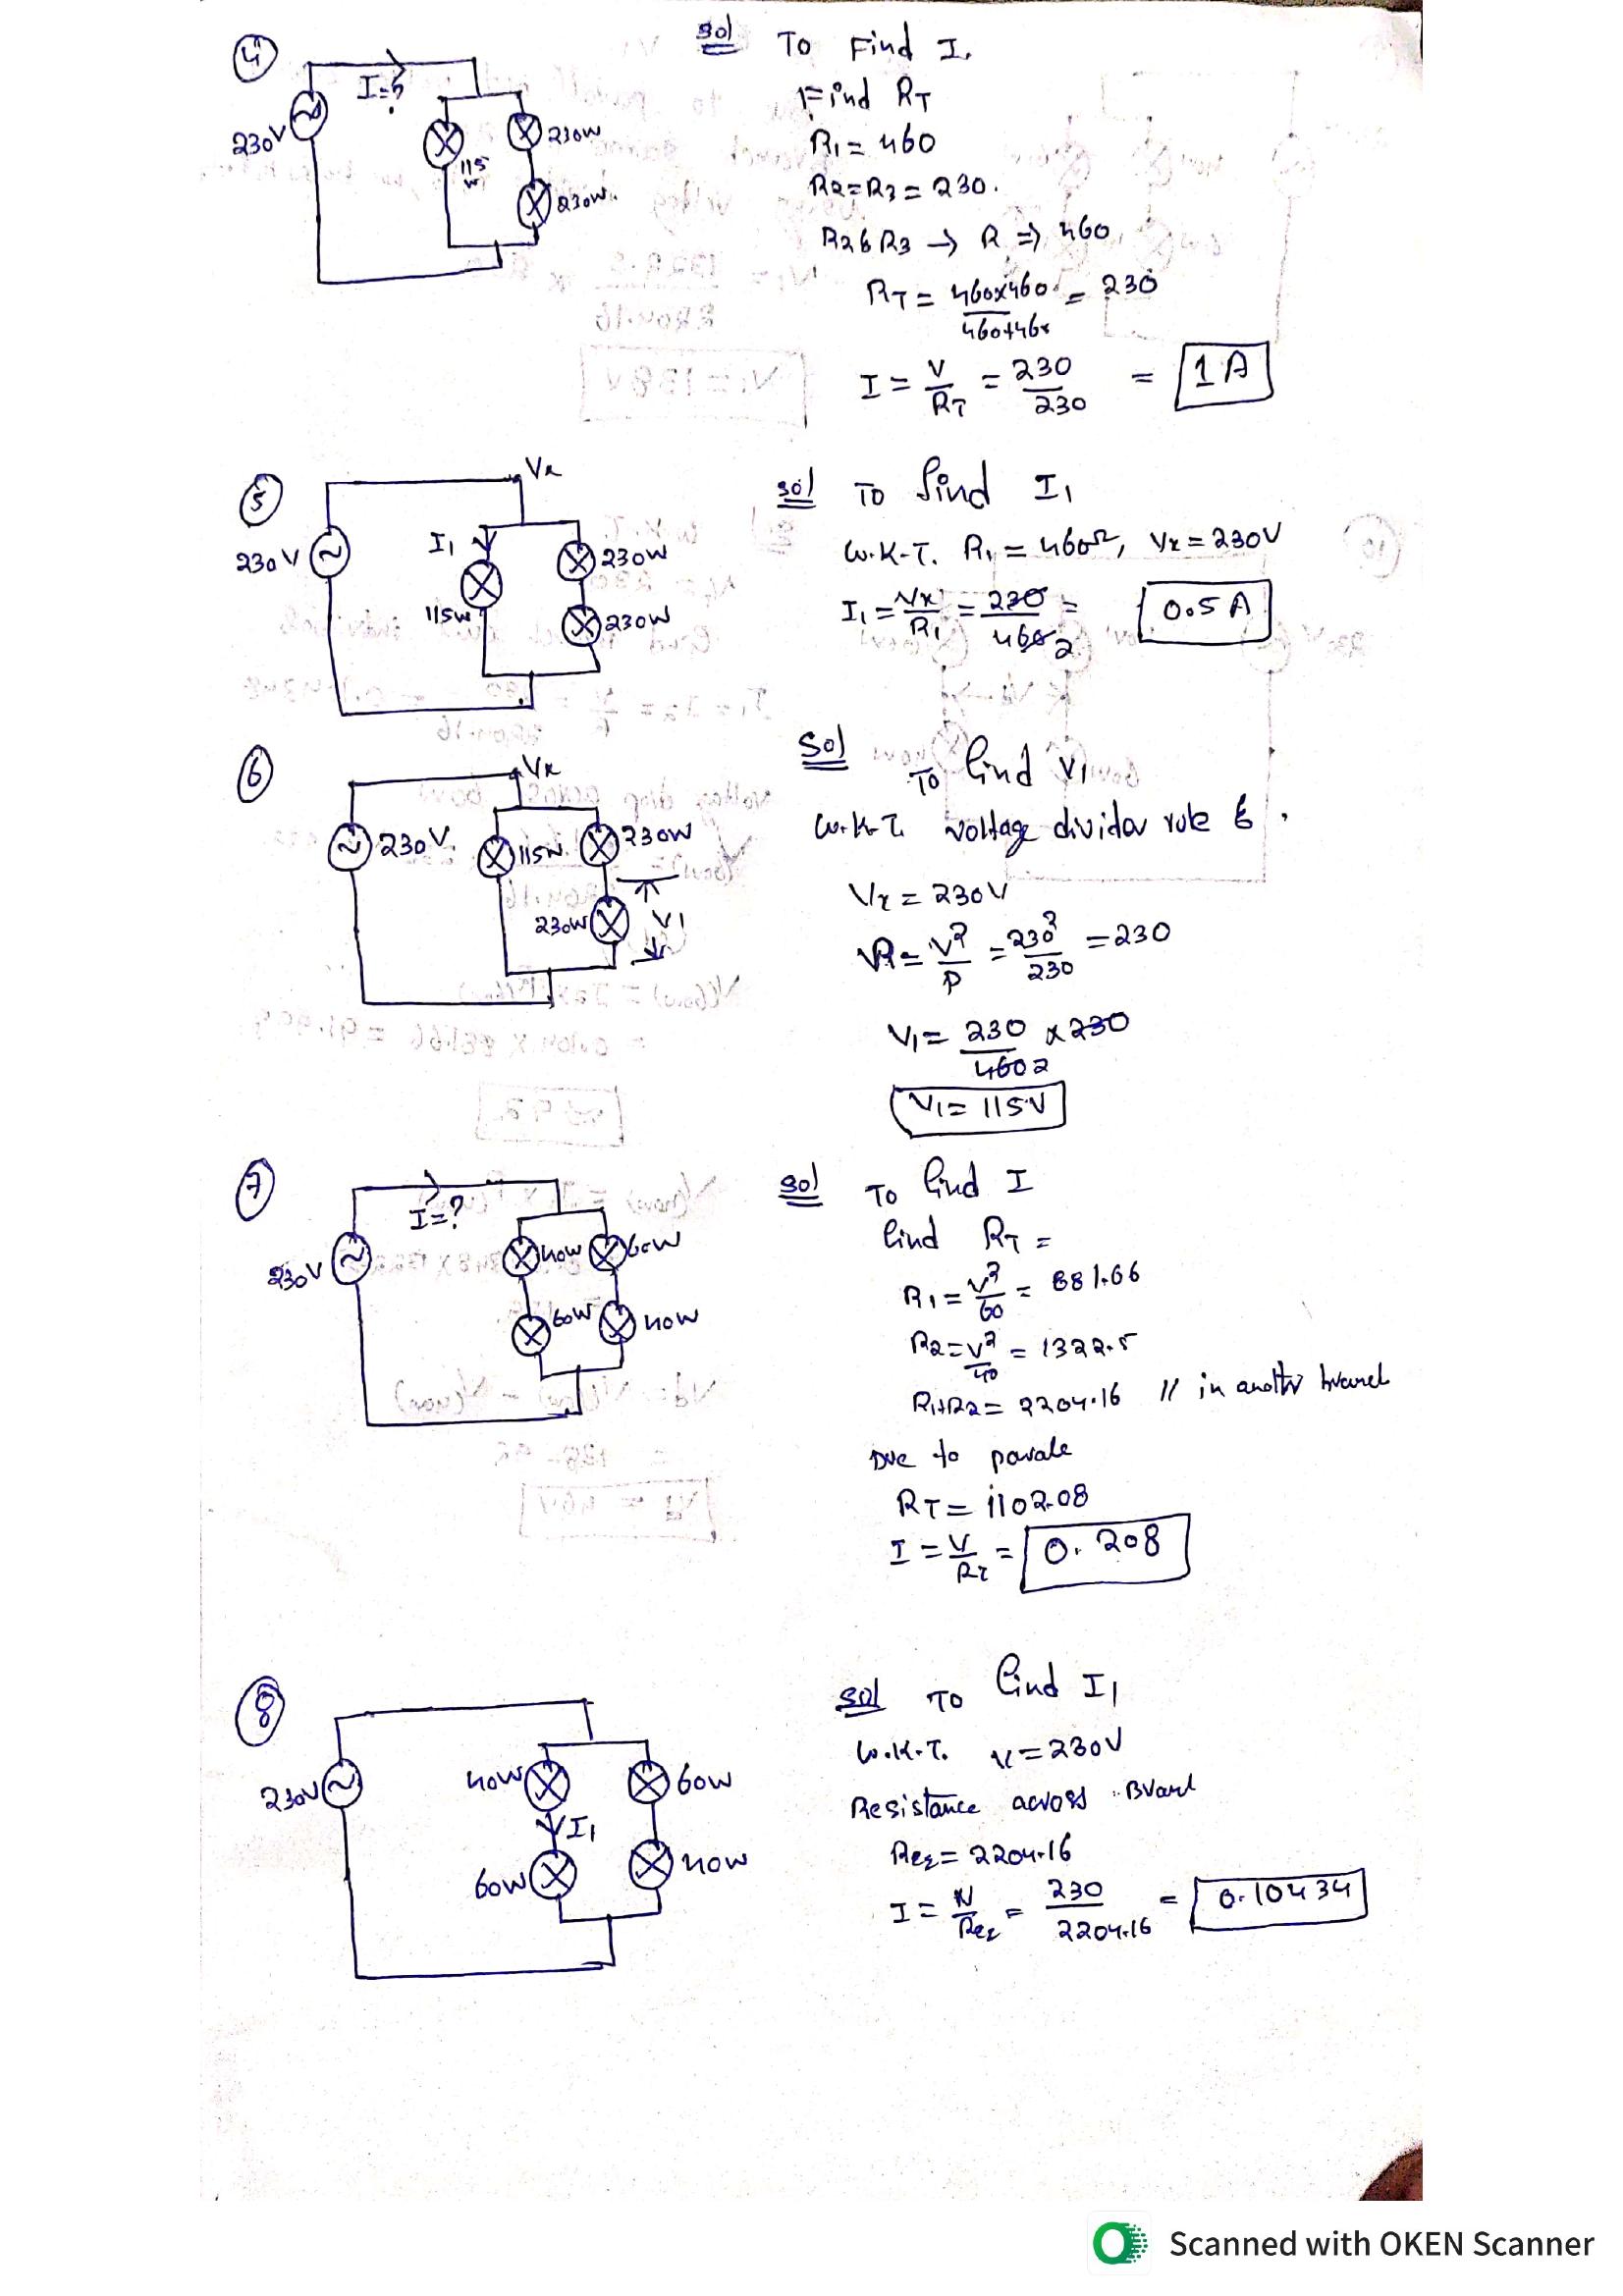 ④
I=?
230V
115
W
230W
230W.
Sol To Find I.
Find RT
R1 = 460
R2=R3 = 230.
R2 & R3 → R ⇒ 460
RT = 460x460 / 460+460 = 230
I = V/RT = 230/230 = 1 A
⑤
Vx
230V
I1
115W
230W
230W
Sol To find I1
W.K.T. R1 = 460Ω, Vx = 230V
I1 = Vx/R1 = 230/460 2 = 0.5 A
⑥
Vx
230V.
115W.
230W
230W
V1
Sol To find V1
W.K.T. voltage divider rule &.
Vx = 230V
R = V²/P = 230²/230 = 230
V1 = 230/460 2 x 230
V1 = 115V
⑦
I=?
230V
40W
60W
60W
40W
Sol To find I
find RT =
R1 = V²/60 = 881.66
R2 = V²/40 = 1322.5
R1+R2 = 2204.16 // in
Due to
RT = 1102.08
I = V/RT = 0.208
⑧
230V
40W
60W
I1
60W
40W
Sol To find I1
W.K.T. V = 230V
Resistance across
Req = 2204.16
I = V/Req = 230/2204.16 = 0.10434
Scanned with OKEN Scanner